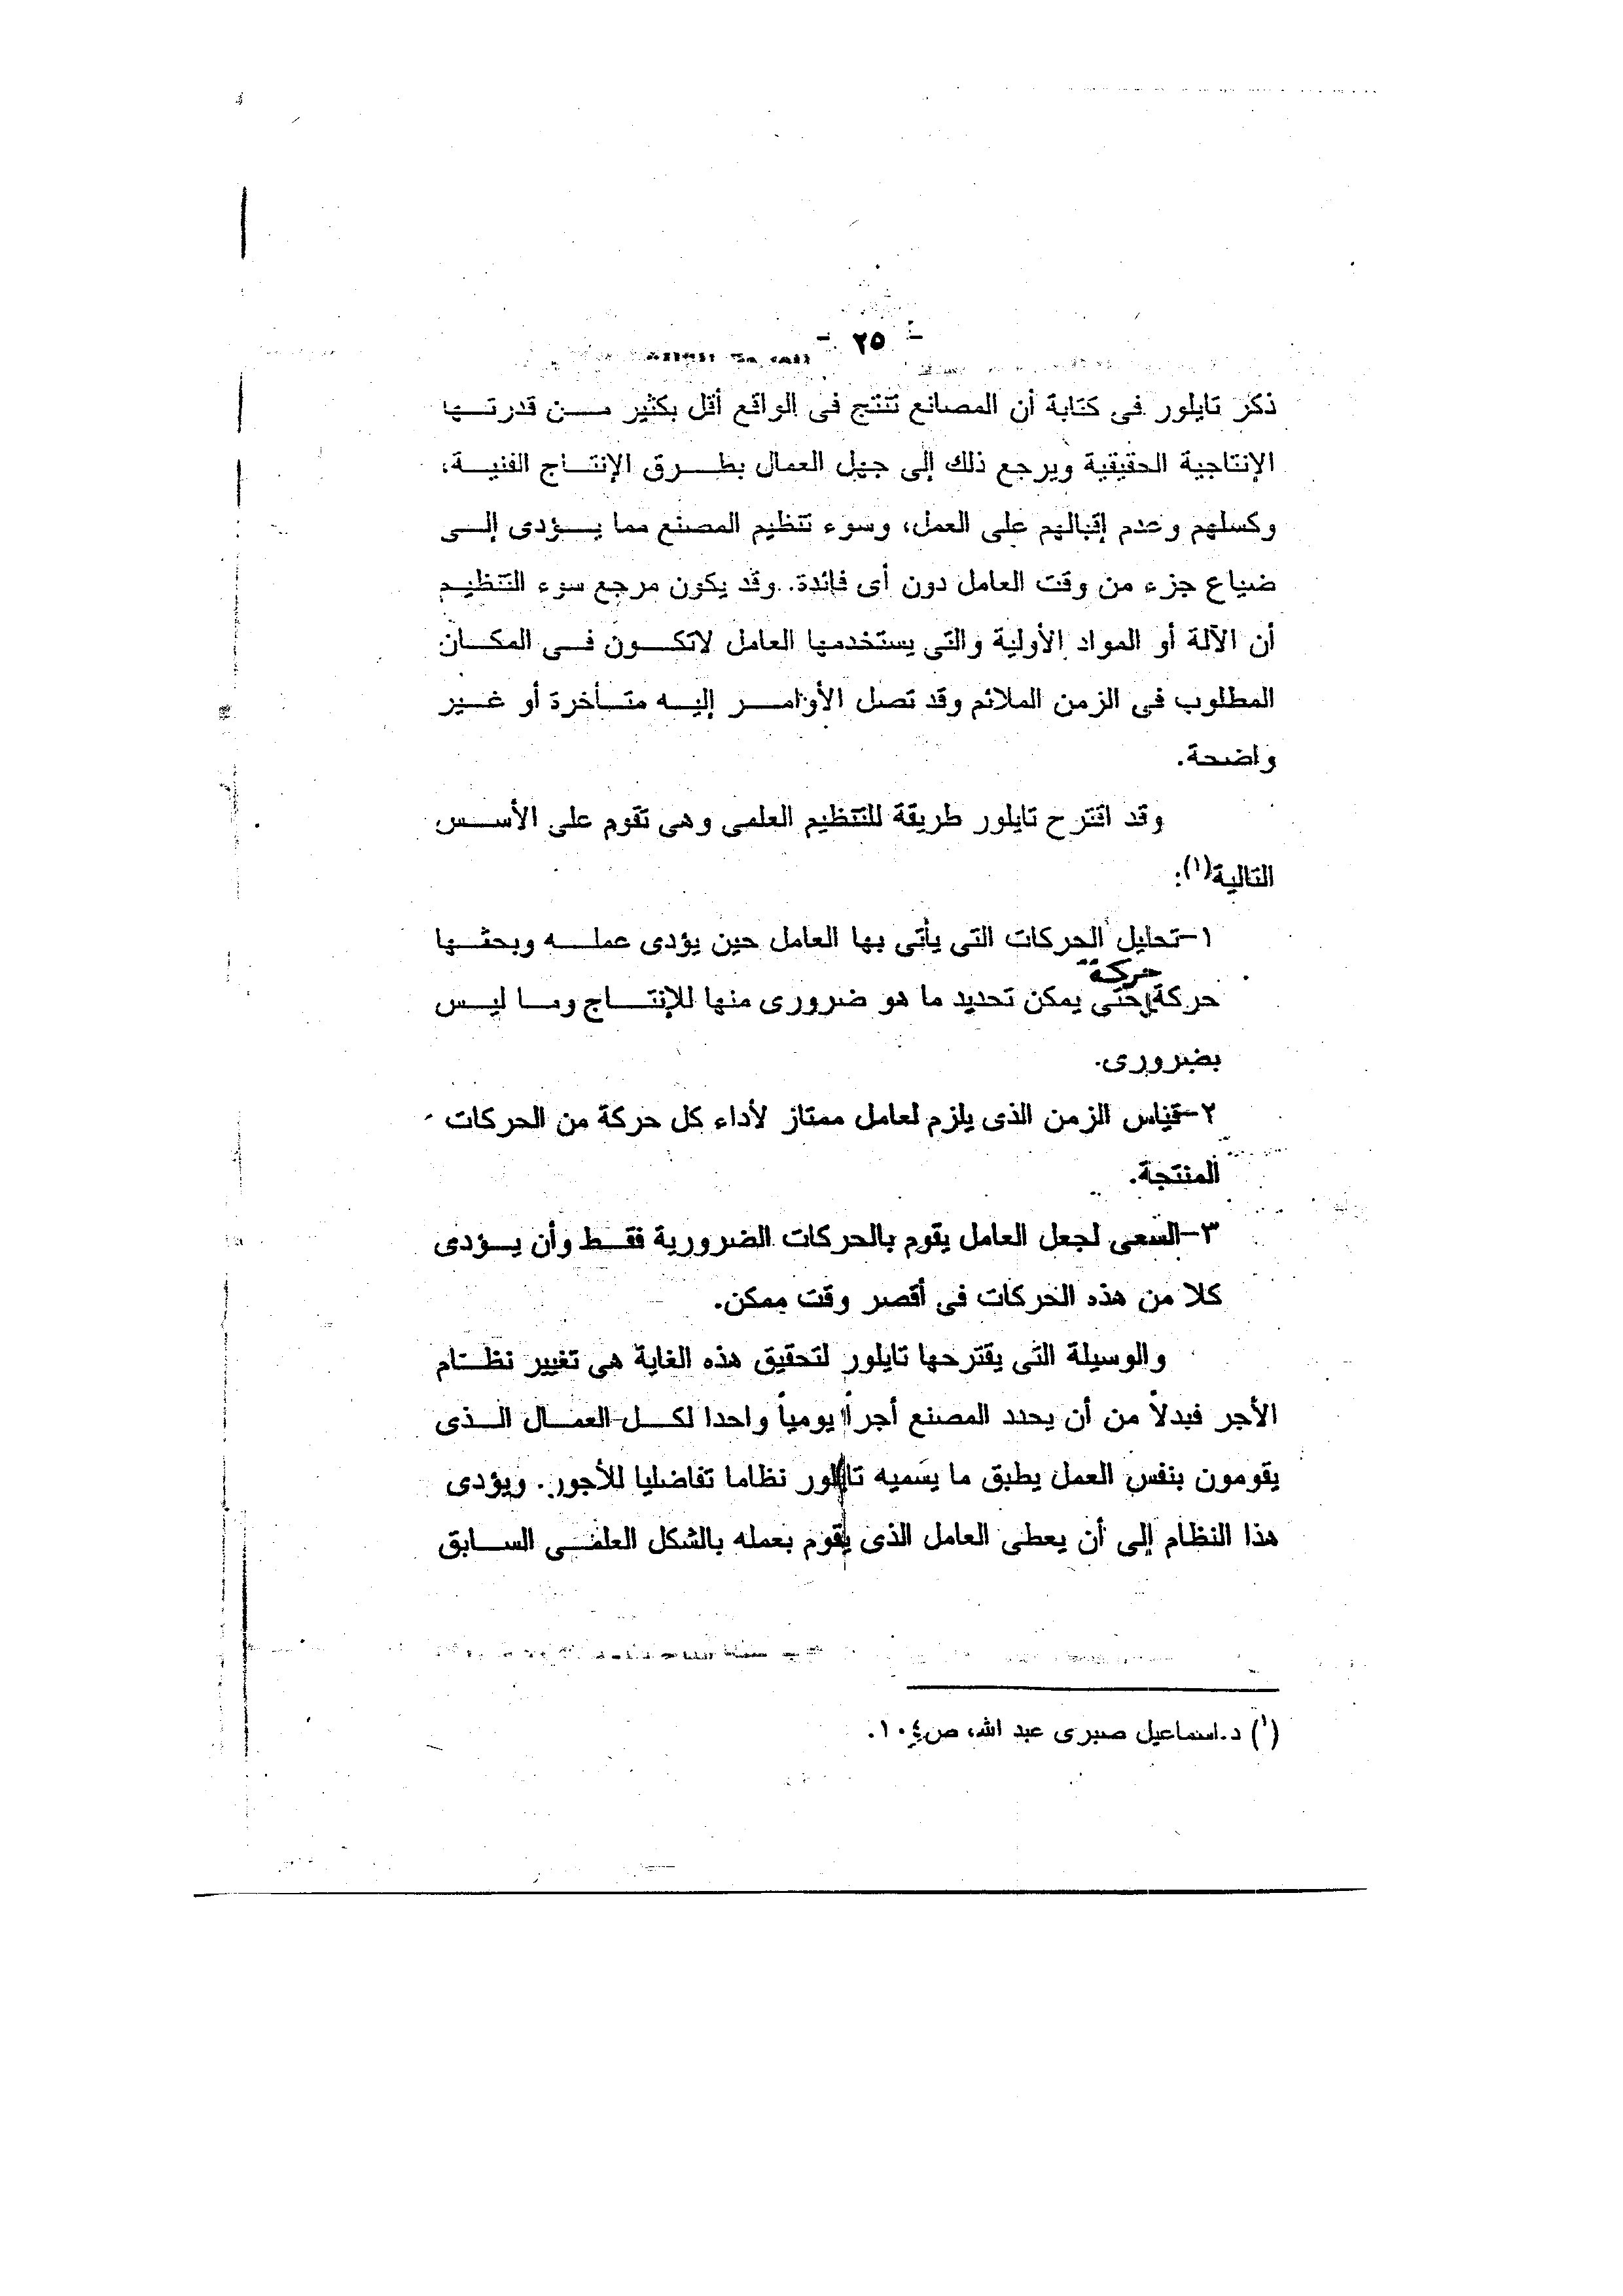 - ٢٥ -
ذكر تايلور فى كتابة أن المصانع تنتج فى الواقع أقل بكثير من قدرتها
الإنتاجية الحقيقية ويرجع ذلك إلى جهل العمال بطرق الإنتاج الفنية،
وكسلهم وعدم إقبالهم على العمل، وسوء تنظيم المصنع مما يؤدى إلى
ضياع جزء من وقت العامل دون أى فائدة. وقد يكون مرجع سوء التنظيم
أن الآلة أو المواد الأولية والتى يستخدمها العامل لاتكون فى المكان
المطلوب فى الزمن الملائم وقد تصل الأوامر إليه متأخرة أو غير
واضحة.
وقد اقترح تايلور طريقة للتنظيم العلمى وهى تقوم على الأسس
التالية(١):
١-تحليل الحركات التى يأتى بها العامل حين يؤدى عمله وبحثها
حركة حركة حتى يمكن تحديد ما هو ضرورى منها للإنتاج وما ليس
بضرورى.
٢-قياس الزمن الذى يلزم لعامل ممتاز لأداء كل حركة من الحركات
المنتجة.
٣-السعى لجعل العامل يقوم بالحركات الضرورية فقط وأن يؤدى
كلا من هذه الحركات فى أقصر وقت ممكن.
والوسيلة التى يقترحها تايلور لتحقيق هذه الغاية هى تغيير نظام
الأجر فبدلاً من أن يحدد المصنع أجراً يومياً واحدا لكل العمال الذى
يقومون بنفس العمل يطبق ما يسميه تايلور نظاما تفاضليا للأجور. ويؤدى
هذا النظام إلى أن يعطى العامل الذى يقوم بعمله بالشكل العلمى السابق
(١) د.اسماعيل صبرى عبد الله، ص١٠٤.